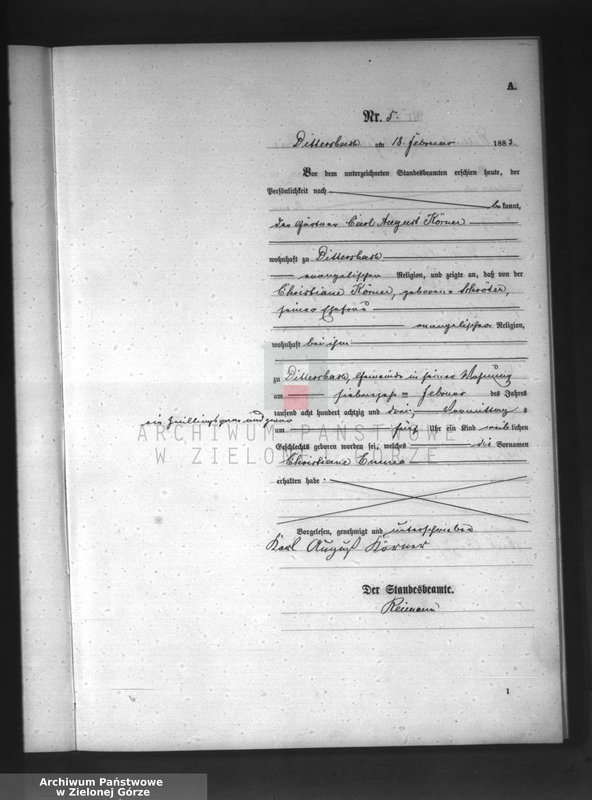 A.
Nr. 5.
Dittersbach am 18. Februar 1883.
Vor dem unterzeichneten Standesbeamten erschien heute, der
Persönlichkeit nach
bekannt,
der Gärtner Carl August Körner
wohnhaft zu Dittersbach
evangelischer Religion, und zeigte an, daß von der
Christiane Körner, geborene Schröter,
seiner Ehefrau
evangelischer Religion,
wohnhaft bei ihm
zu Dittersbach, Gemeinde in seiner Wohnung
am siebenzehn Februar des Jahres
tausend acht hundert achtzig und drei, Vormittag s
ein Zwillingspaar und zwar
um fünf Uhr ein Kind weiblichen
Geschlechts geboren worden sei, welches die Vornamen
Christiane Emma
erhalten habe.
Vorgelesen, genehmigt und unterschrieben
Karl August Körner
Der Standesbeamte.
Reimann
1
ARCHIWUM PAŃSTWOWE
W ZIELONEJ GÓRZE
Archiwum Państwowe
w Zielonej Górze